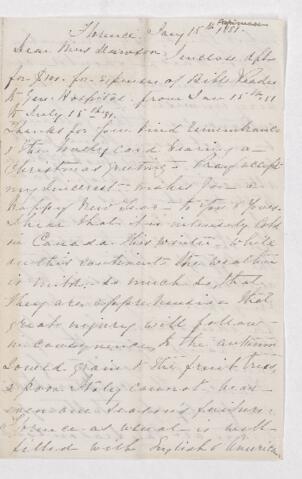 Florence. Jany 15th 1881.
Dear Miss Dawson I enclose dft
for $100. for expenses of Bible Reader
to Gen. Hospital. from Jan 15th 81
to July 15th 81.
Thanks for your kind remembrance
& the pretty card bearing a
Christmas greeting - Pray accept
my sincerest wishes for a
happy New Year - to you & yours.
I hear that it is intensely cold
in Canada this winter, while
on this continent the weather
is mild - so much so, that
they are apprehensive that
great injury will follow
in consequence, to the autumn
sowed grain & the fruit trees,
& poor Italy cannot bear
even one season's failure.
Florence as usual is well
filled with English & American